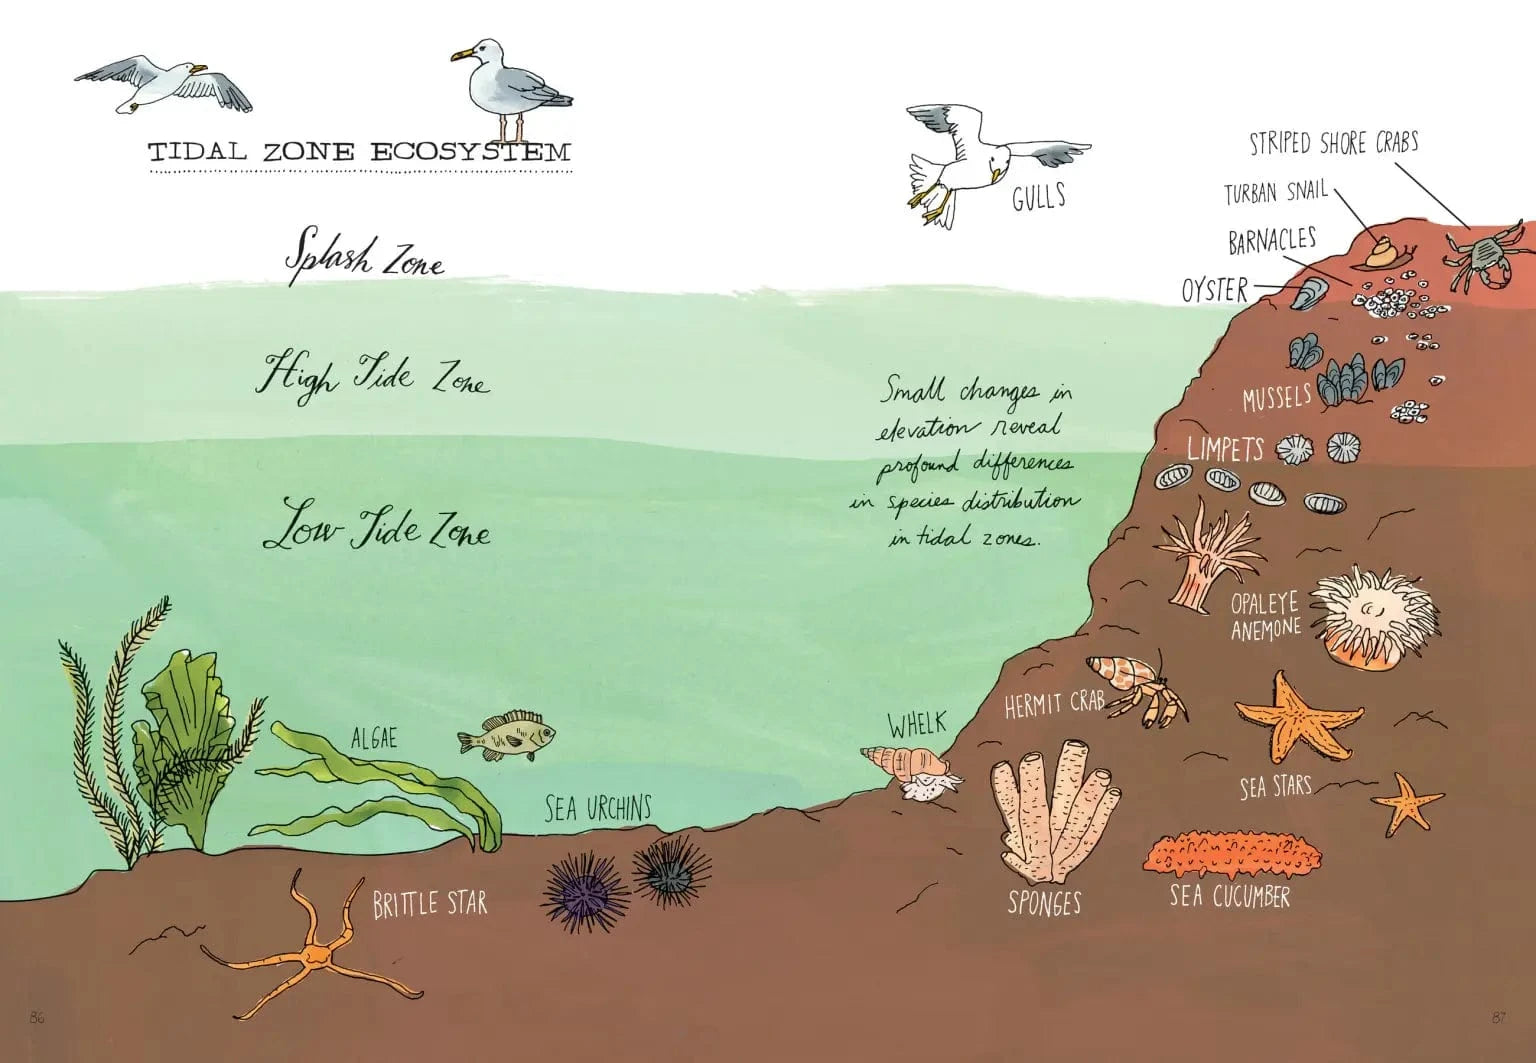 TIDAL ZONE ECOSYSTEM
Splash Zone
High Tide Zone
Low Tide Zone
Small changes in
elevation reveal
profound differences
in species distribution
in tidal zones.
GULLS
STRIPED SHORE CRABS
TURBAN SNAIL
BARNACLES
OYSTER
MUSSELS
LIMPETS
OPALEYE
ANEMONE
HERMIT CRAB
WHELK
SEA STARS
SPONGES
SEA CUCUMBER
ALGAE
SEA URCHINS
BRITTLE STAR
86
87